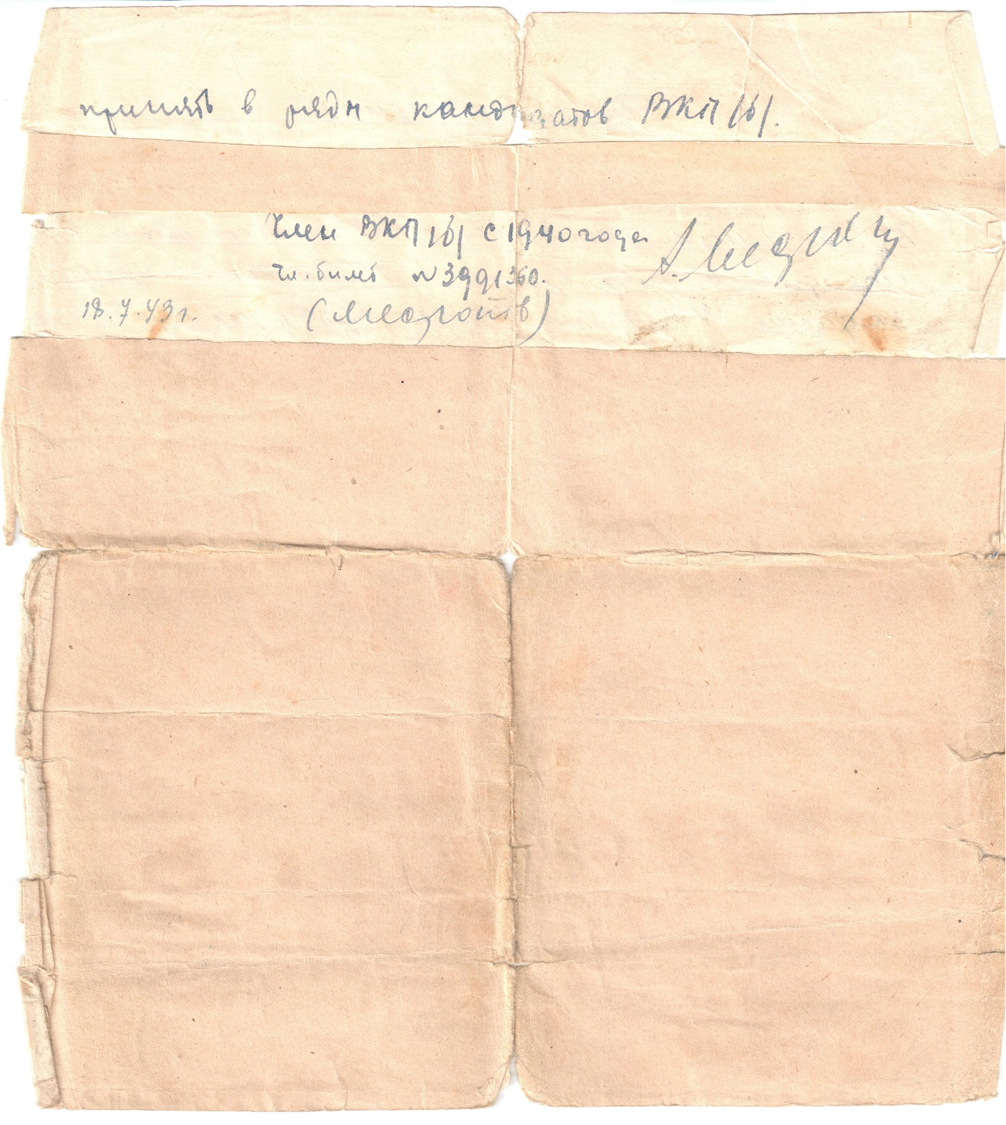 принять в ряды кандидатов ВКП/б/.
Член ВКП/б/ с 1940 года
чл. билет № 3991360.
18.7.43 г.